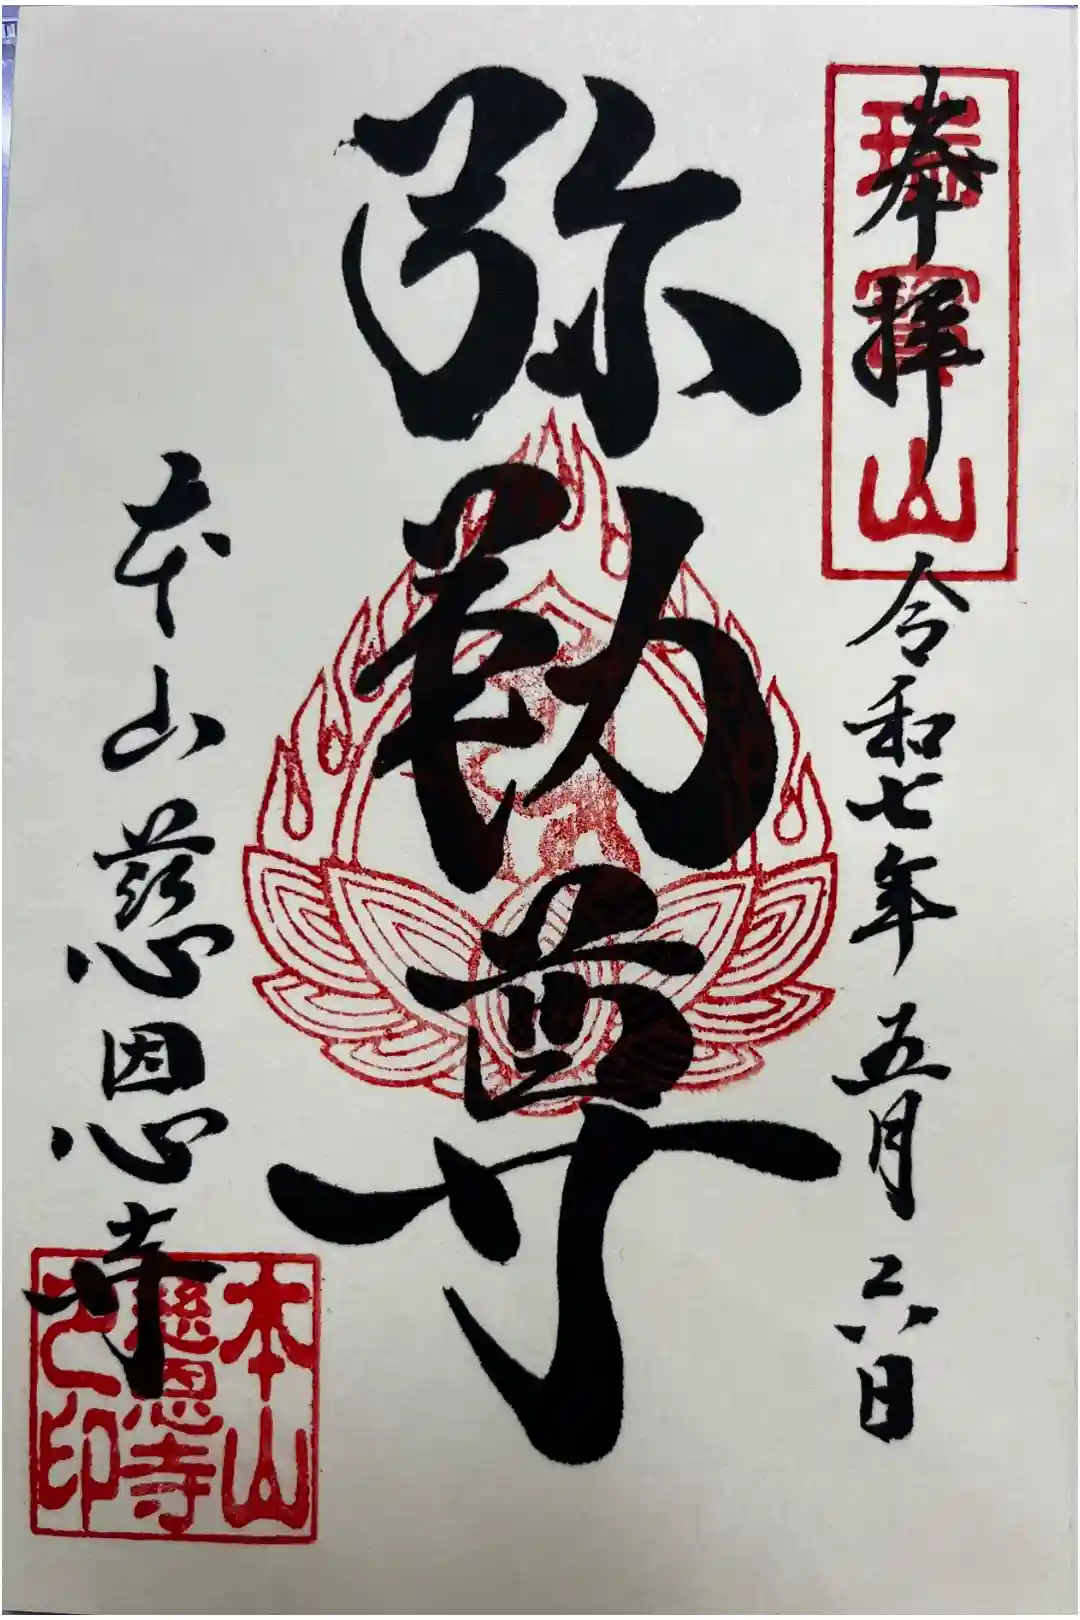 奉拝
瑞寶山
令和七年五月六日
弥勒尊
本山慈恩寺
本山
慈恩寺
之印